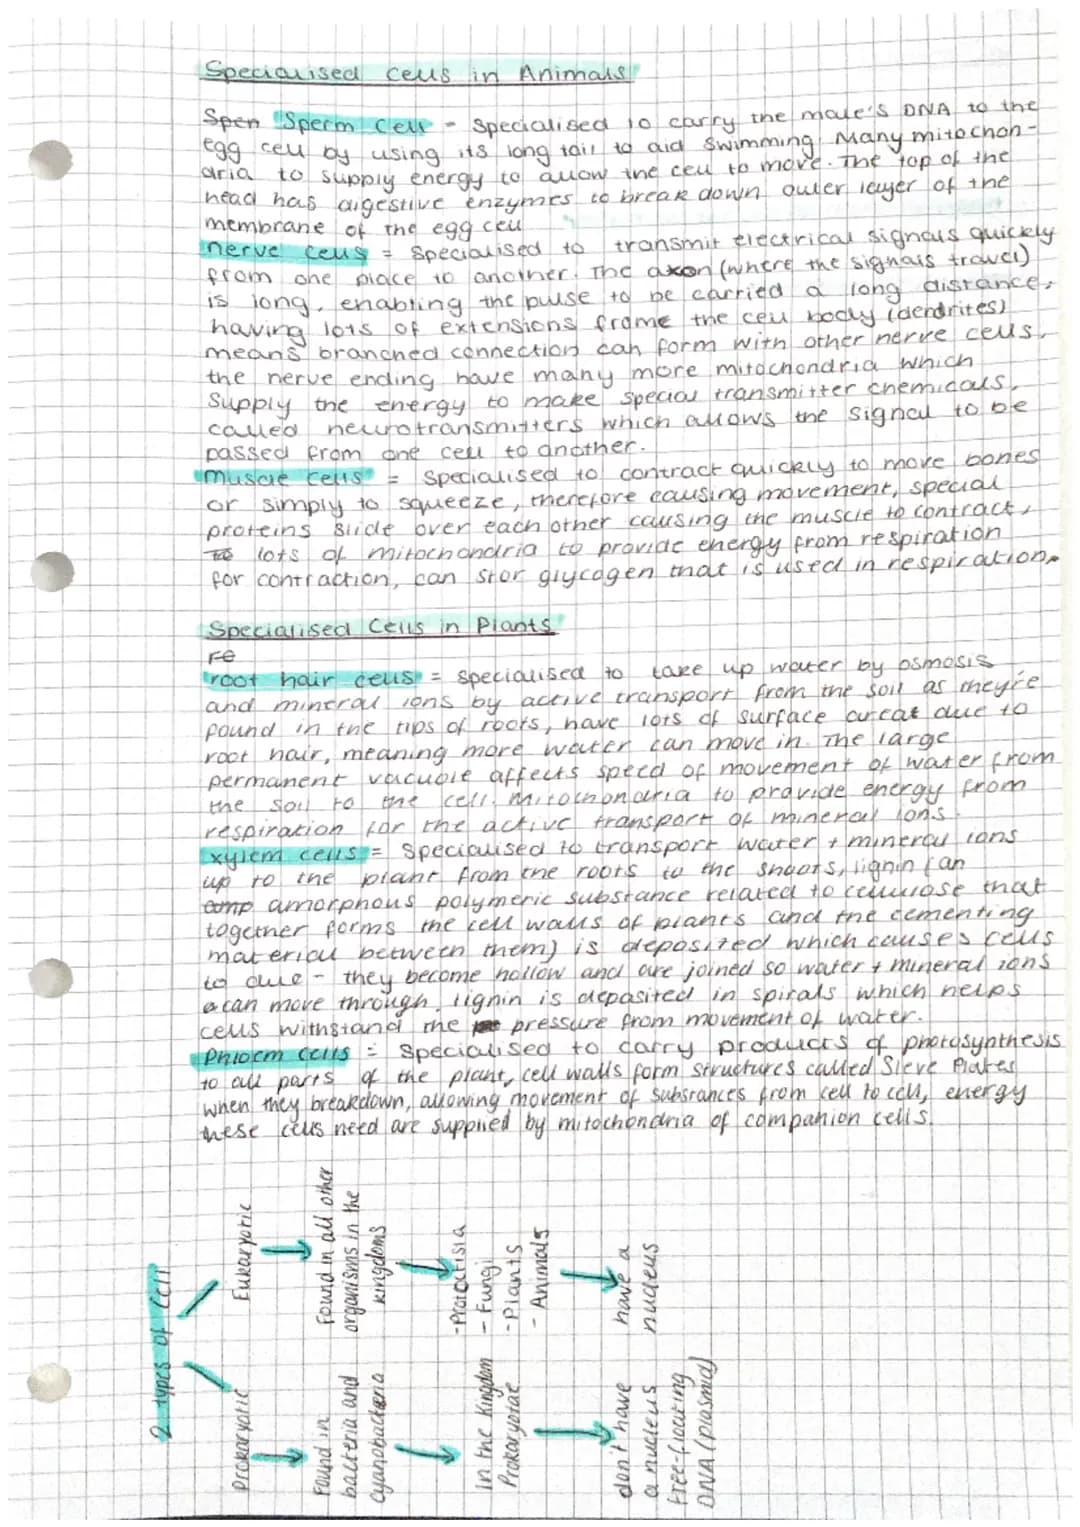 Specialised cells in Animals
Spen Sperm Cell - Specialised to carry the male's DNA to the
egg cell by using its long tail to aid swimming. Many mitochon-
dria to supply energy to allow the cell to move. The top of the
head has digestive enzymes to break down outer layer of the
membrane of the egg cell
nerve cells = Specialised to transmit electrical signals quickly
from one place to another. The axon (where the signals travel)
is long, enabling the pulse to be carried a long distance,
having lots of extensions frome the cell body (dendrites)
means branched connection can form with other nerve cells,
the nerve ending have many more mitochondria which
supply the energy to make special transmitter chemicals,
called neurotransmitters which allows the signal to be
passed from one cell to another.
Muscle cells = Specialised to contract quickly to move bones
or simply to squeeze, therefore causing movement, special
proteins slide over each other causing the muscle to contract,
to lots of mitochondria to provide energy from respiration
for contraction, can stor glycogen that is used in respiration.
Specialised Cells in Plants
re
root hair cells = specialised to take up water by osmosis
and mineral ions by active transport from the soil as they're
found in the tips of roots, have lots of surface areat due to
root hair, meaning more water can move in. The large
permanent vacuole affects speed of movement of water from
the soil to the cell. Mitochondria to provide energy from
respiration for the active transport of mineral ions.
xylem cells = Specialised to transport water + mineral ions
up to the plant from the roots to the shoots, lignin (an
amp amorphous polymeric substance related to cellulose that
together forms the cell walls of plants and the cementing
material between them) is deposited which causes cells
to due - they become hollow and are joined so water + mineral ions
can move through, lignin is deposited in spirals which helps
cells withstand the pressure from movement of water.
Phloem cells = Specialised to carry products of photosynthesis
to all parts of the plant, cell walls form structures called Sieve Plates
when they breakdown, allowing movement of substances from cell to cell, energy
these cells need are supplied by mitochondria of companion cells.
2 types of Cell
Prokaryotic
Found in
bacteria and
cyanobacteria
In the Kingdom
Prokaryotae
don't have
a nucleus
free-floating
DNA (plasmid)
Eukaryotic
Found in all other
organisms in the
kingdoms
- Protoctista
- Fungi
- Plants
- Animals
have a
nucleus